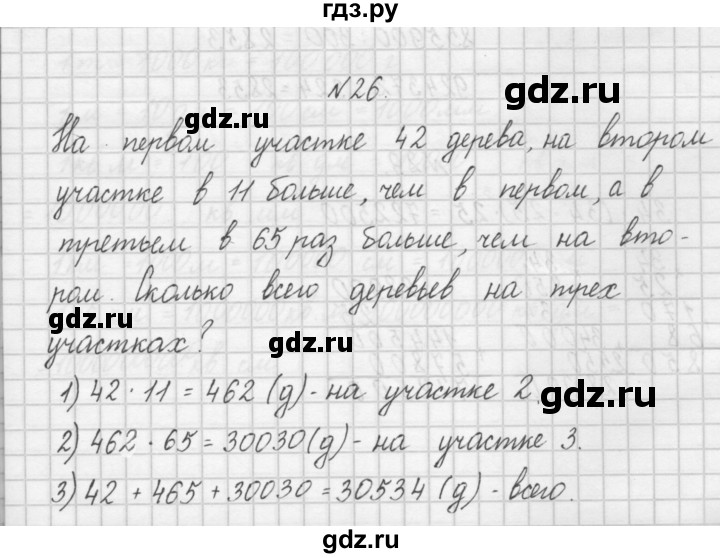 гдз.ру
№26.
gdz.ru
gdz.ru
На первом участке 42 дерева, на втором
участке в 11 больше, чем в первом, а в
третьем в 65 раз больше, чем на вто-
ром. Сколько всего деревьев на трех
gdz.ru
участках?
gdz.ru
1) 42 · 11 = 462 (д) - на участке 2.
gdz.ru
2) 462 · 65 = 30030 (д) - на участке 3.
3) 42 + 465 + 30030 = 30534 (д) - всего.
гдз.ру